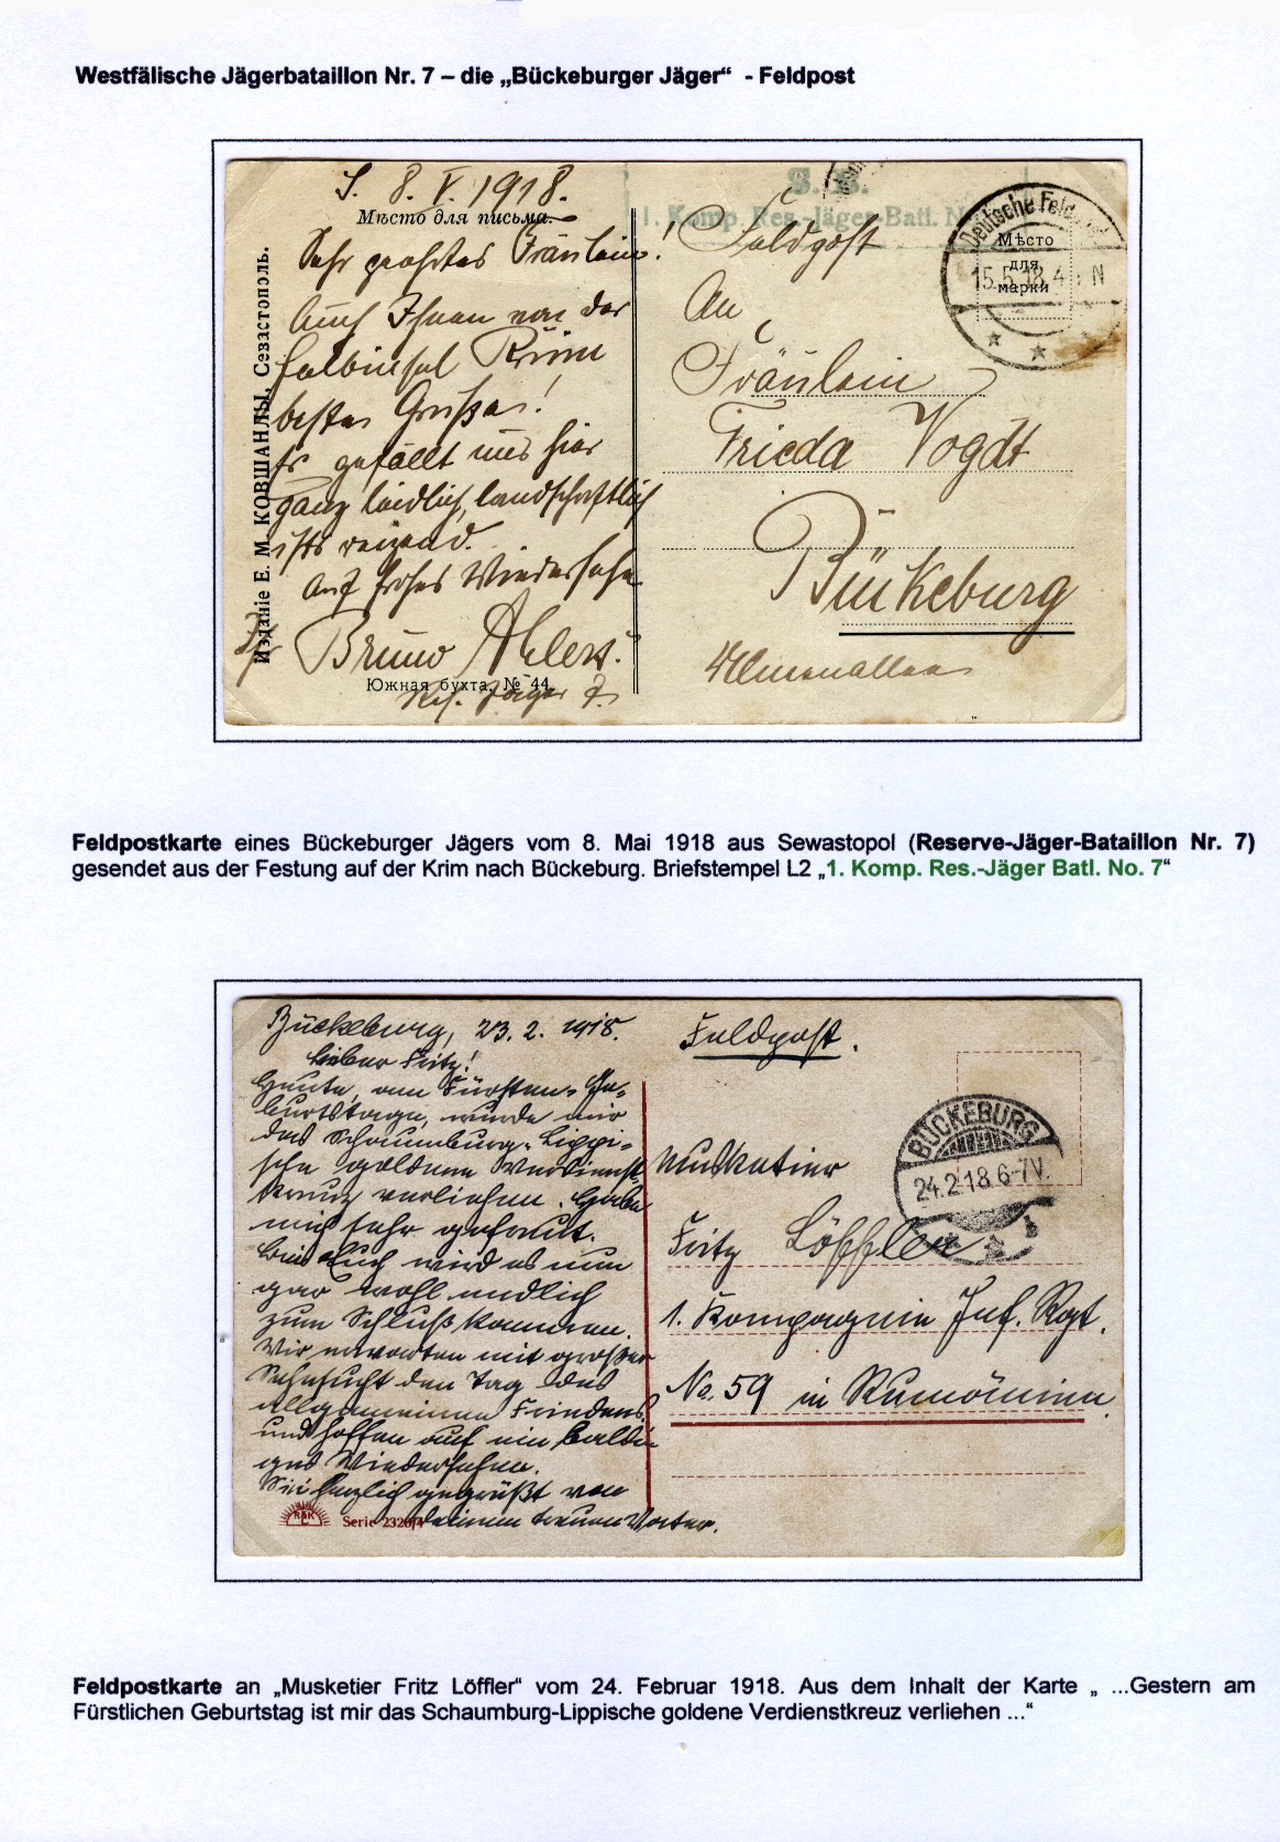 Westfälische Jägerbataillon Nr. 7 – die „Bückeburger Jäger“ - Feldpost
S. 8. V. 1918.
Мѣсто для письма.
Sehr geehrtes Fräulein!
Auch Ihnen von der
Halbinsel Krim
beste Grüße!
Es gefällt uns hier
ganz leidlich, landschaftlich
ists reizend.
Auf frohes Wiedersehn
Bruno Ahlers.
Южная бухта. № 44.
Res. Jäger 7.
Изданіе Е. М. КОВШАНЛЫ, Севастополь.
S. B.
1. Komp. Res.-Jäger-Batl. N
Feldpost
Deutsche Feldpost
15.5.18.4 N
Мѣсто
для
марки
An
Fräulein
Frieda Vogdt
Bückeburg
Ulmenallee
Feldpostkarte eines Bückeburger Jägers vom 8. Mai 1918 aus Sewastopol (Reserve-Jäger-Bataillon Nr. 7)
gesendet aus der Festung auf der Krim nach Bückeburg. Briefstempel L2 „1. Komp. Res.-Jäger Batl. No. 7“
Bückeburg, 23. 2. 1918.
Lieber Fritz!
Heute, am Fürsten-Ge-
burtstage, wurde mir
das Schaumburg-Lippi-
sche goldene Verdienst-
kreuz verliehen. Habe
mich sehr gefreut.
Bei Euch wird es nun
gar wohl endlich
zum Schluß kommen.
Wir erwarten mit großer
Sehnsucht den Tag des
allgemeinen Friedens
und hoffen auf ein baldi-
ges Wiedersehen.
Sei herzlich gegrüßt von
deinem treuen Vater.
R&K
Serie 2320/4
Feldpost.
BÜCKEBURG
24.2.18.6-7V.
Musketier
Fritz Löffler
1. Kompagnie Inf. Rgt.
No. 59 in Rumänien.
Feldpostkarte an „Musketier Fritz Löffler“ vom 24. Februar 1918. Aus dem Inhalt der Karte „ ...Gestern am
Fürstlichen Geburtstag ist mir das Schaumburg-Lippische goldene Verdienstkreuz verliehen ...“